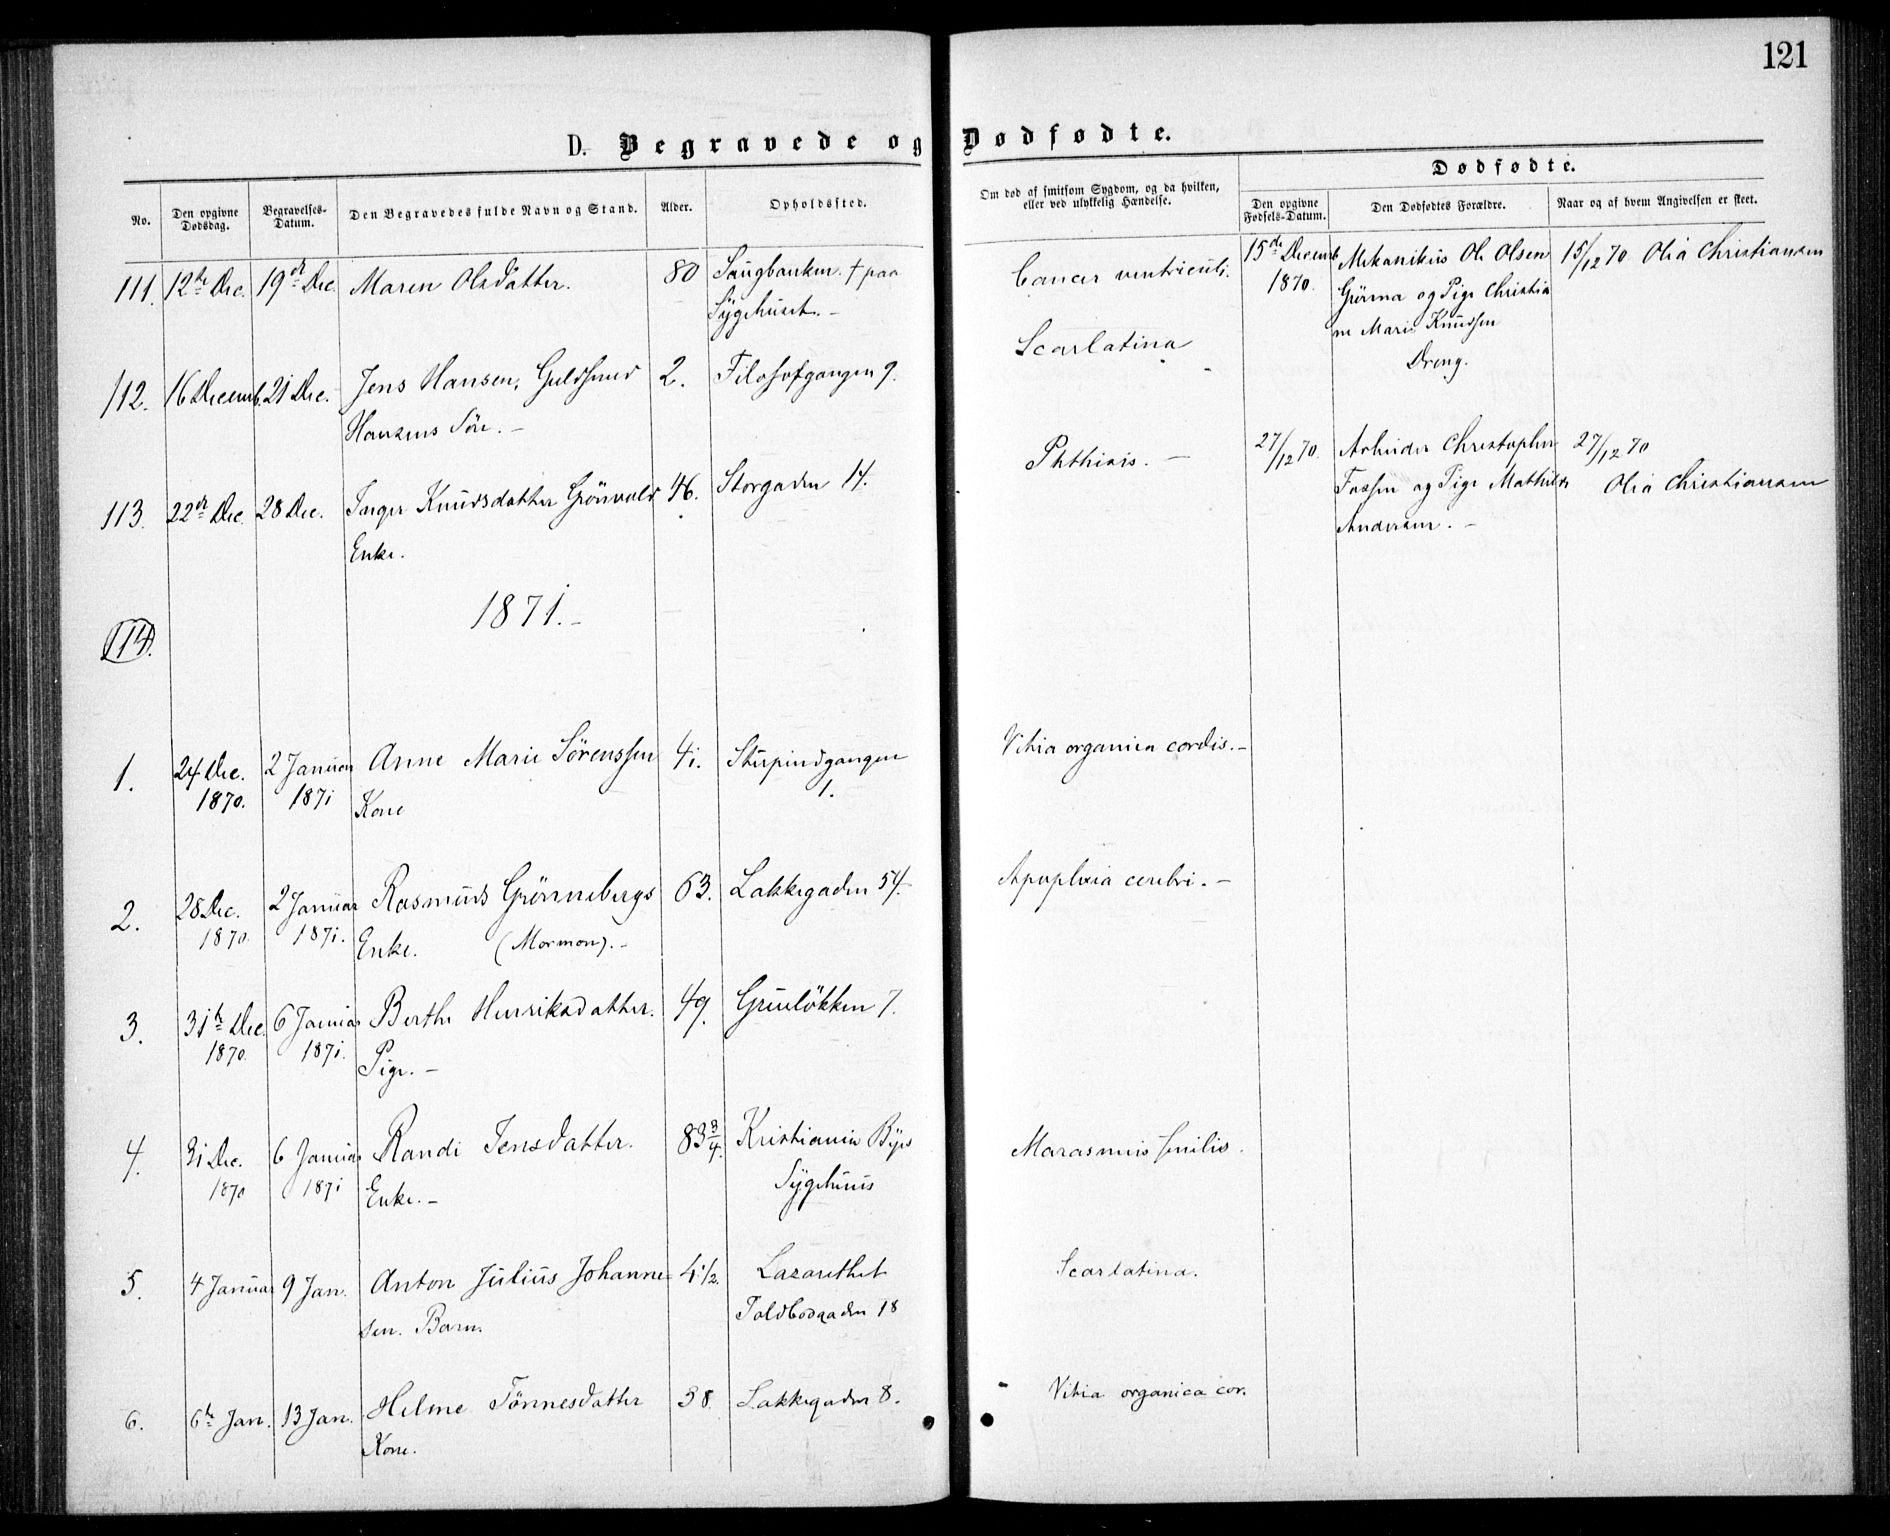 121
D. Begravede og Dødfødte.
No.
Den opgivne Dødsdag.
Begravelses-Datum.
Den Begravedes fulde Navn og Stand.
Alder.
Opholdssted.
Om død af smitsom Sygdom, og da hvilken, eller ved ulykkelig Hændelse.
Dødfødte.
Den opgivne Fødsels-Datum.
Den Dødfødtes Forældre.
Naar og af hvem Angivelsen er skeet.
111. 12te Dec. 19de Dec. Maren Olsdatter. 80 Saugbanken † paa
Sygehuset. –
Cancer ventriculi.
15de Decemb. 1870.
Mekanikus Ole Olsen
Grønna og Pige Christia
ne Marie Knudsen
Dreng.
15/12 70 Olia Christiansen
112. 16 Decemb. 21 Dec. Jens Hansen, Guldsmed 2. Filosofgangen 9.
Hansens Søn. –
Scarlatina
113. 22de Dec. 28 Dec. Inger Knudsdatter Grönvold 46. Storgaden 14.
Enke.
Phthisis. –
27/12 70.
Arbeider Christopher
Fossen og Pige Mathilde
Andersen. –
27/12 70
Olia Christiansen
1871. –
114.
1. 24 Dec. 2 Januar Anne Marie Sørenssen 41. Stupindgangen
1870. 1871 Kone 1.
Vitia organica cordis. –
2. 28 Dec. 2 Januar Rasmus Grønnebergs 63. Lakkegaden 54.
1870. 1871. Enke. (Mormon). –
Apoplexia cerebri. –
3. 31te Dec. 6 Januar Berthe Henriksdatter. 49. Grüuløkken 7.
1870. 1871. Pige. –
4. 31 Dec. 6 Januar Randi Jensdatter. 83 3/4. Kristiania Byes
1870 1871 Enke. – Sygehuus
Marasmus senilis.
5. 4 Januar 9 Jan. Anton Julius Johanne- 4 1/2. Lazarethet
sen. Barn. Toldbodgaden 18
Scarlatina.
6. 6te Jan. 13 Jan. Helene Tönnesdatter 38. Lakkegaden 8.
Kone.
Vitia organica cor.